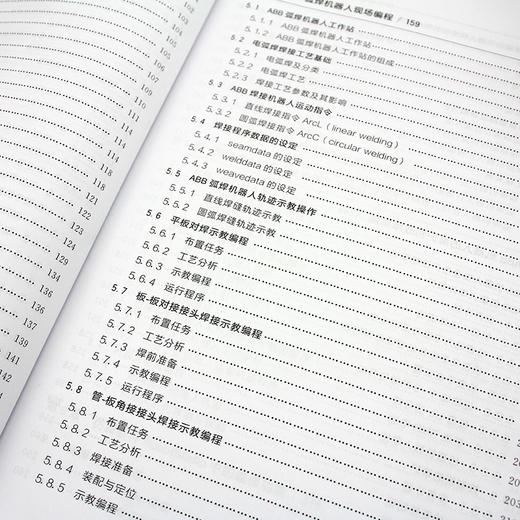 102
102
103
105
106
106
107
111
113
114
114
114
118
118
121
122
124
127
129
134
134
136
136
139
140
141
142
弧焊机器人现场编程 / 159
5.1 ABB 弧焊机器人工作站
5.1.1 ABB 弧焊机器人工作站
5.1.2 ABB 弧焊机器人工作站的组成
5.2 电弧焊焊接工艺基础
5.2.1 电弧焊及分类
5.2.2 电弧焊工艺
5.2.3 焊接工艺参数及其影响
5.3 ABB 焊接机器人运动指令
5.3.1 直线焊接指令 ArcL (linear welding)
5.3.2 圆弧焊接指令 ArcC (circular welding)
5.4 焊接程序数据的设定
5.4.1 seamdata 的设定
5.4.2 welddata 的设定
5.4.3 weavedata 的设定
5.5 ABB 弧焊机器人轨迹示教操作
5.5.1 直线焊缝轨迹示教
5.5.2 圆弧焊缝轨迹示教
5.6 平板对焊示教编程
5.6.1 布置任务
5.6.2 工艺分析
5.6.3 示教编程
5.6.4 运行程序
5.7 板-板对接接头焊接示教编程
5.7.1 布置任务
5.7.2 工艺分析
5.7.3 焊前准备
5.7.4 示教编程
5.7.5 运行程序
5.8 管-板角接接头焊接示教编程
5.8.1 布置任务
5.8.2 工艺分析
5.8.3 焊接准备
5.8.4 装配与定位
5.8.5 示教编程